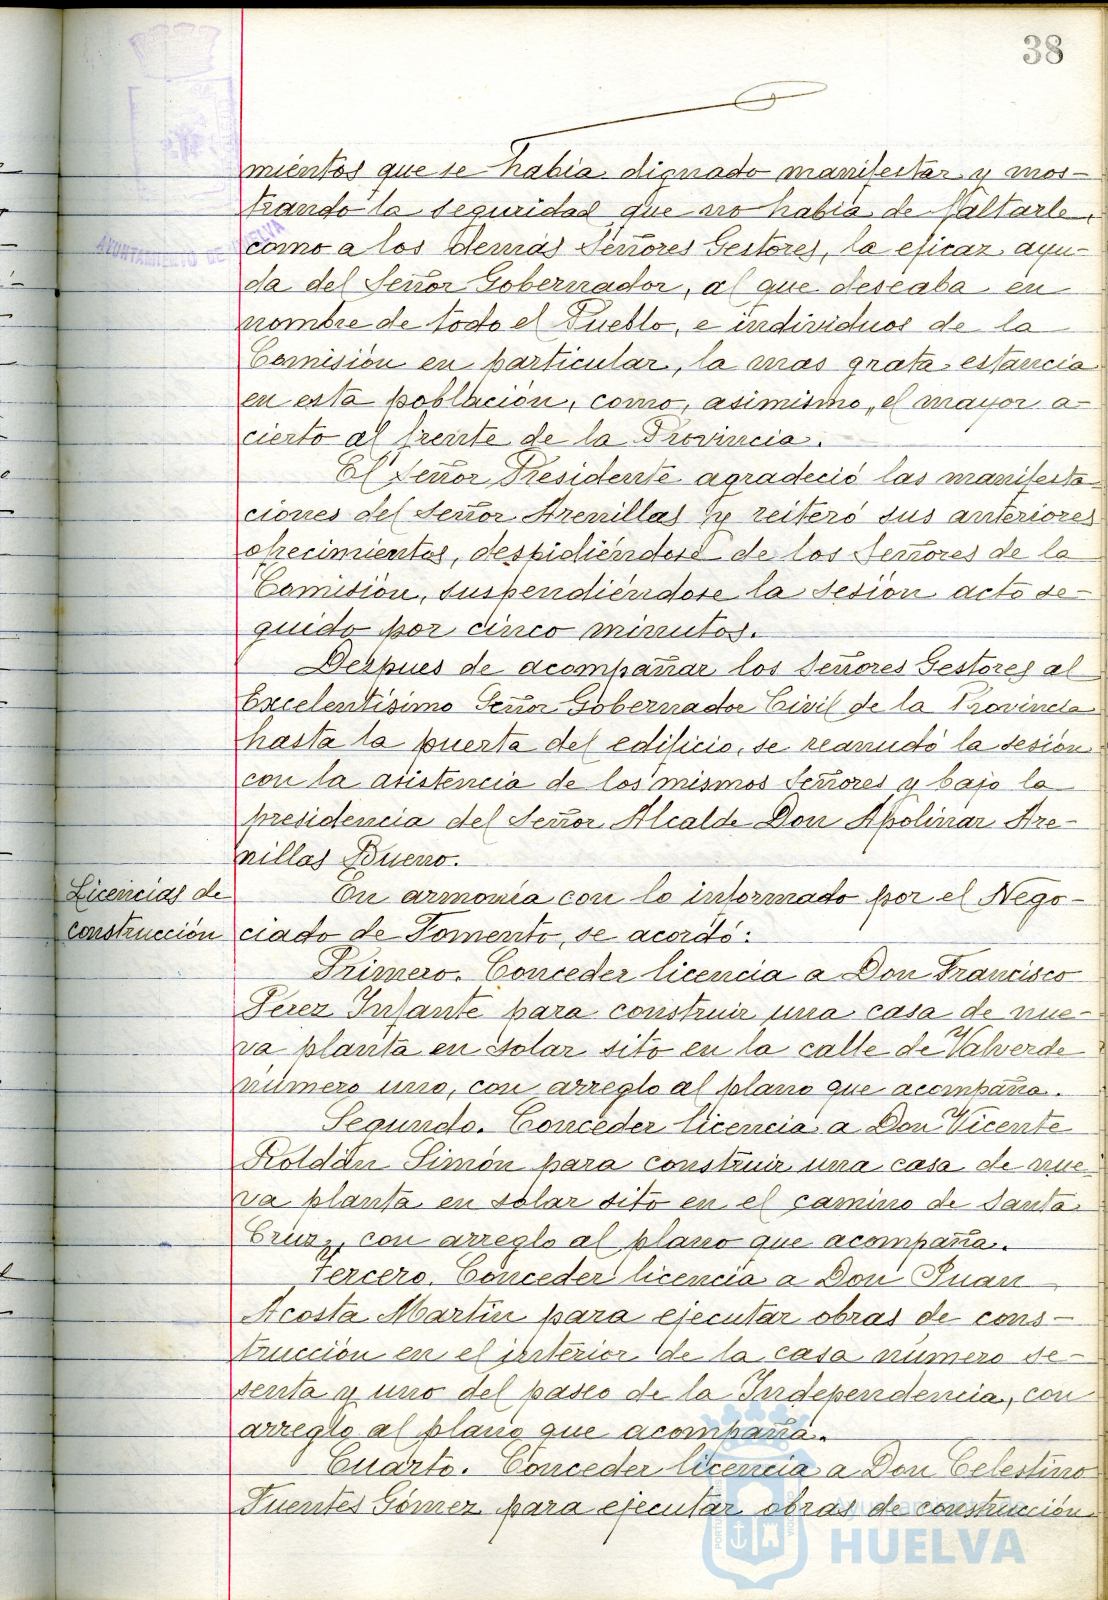 38
AYUNTAMIENTO DE HUELVA
mientos que se había dignado manifestar y mos-
trando la seguridad que no había de faltarle,
como a los demás Señores Gestores, la eficaz ayu-
da del Señor Gobernador, al que deseaba en
nombre de todo el Pueblo, e individuos de la
Comisión en particular, la mas grata estancia
en esta población, como, asimismo, el mayor a-
cierto al frente de la Provincia.
El Señor Presidente agradeció las manifesta-
ciones del Señor Arenillas y reiteró sus anteriores
ofrecimientos, despidiéndose de los Señores de la
Comisión, suspendiéndose la sesión acto se-
guido por cinco minutos.
Despues de acompañar los Señores Gestores al
Excelentísimo Señor Gobernador Civil de la Provincia
hasta la puerta del edificio, se reanudó la sesión
con la asistencia de los mismos Señores y bajo la
presidencia del Señor Alcalde Don Apolinar Are-
nillas Bueno.
Licencias de
construcción
En armonía con lo informado por el Nego-
ciado de Fomento, se acordó:
Primero. Conceder licencia a Don Francisco
Perez Infante para construir una casa de nue-
va planta en solar sito en la calle de Valverde
número uno, con arreglo al plano que acompaña.
Segundo. Conceder licencia a Don Vicente
Roldán Simón para construir una casa de nue-
va planta en solar sito en el camino de Santa
Cruz, con arreglo al plano que acompaña.
Tercero. Conceder licencia a Don Juan
Acosta Martín para ejecutar obras de cons-
trucción en el interior de la casa número se-
senta y uno del paseo de la Independencia, con
arreglo al plano que acompaña.
Cuarto. Conceder licencia a Don Celestino
Fuentes Gómez para ejecutar obras de construcción
HUELVA